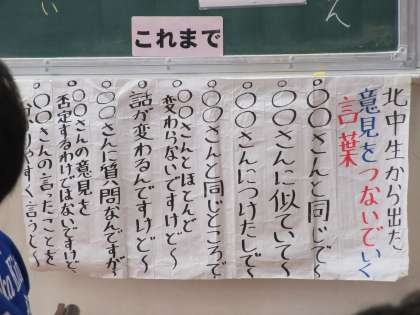 これまで
北中生から出た
意見をつないでいく
言葉
○○さんと同じで〜
○○さんに似ていて〜
○○さんにつけたしで〜
○○さんと同じところで〜
○○さんとほとんど
変わらないですけど〜
話が変わるんですけど〜
○○さんに質問なんですが〜
○○さんの意見を
否定するわけではないですけど〜
○○さんの言ったことを
わかりやすく言うと〜